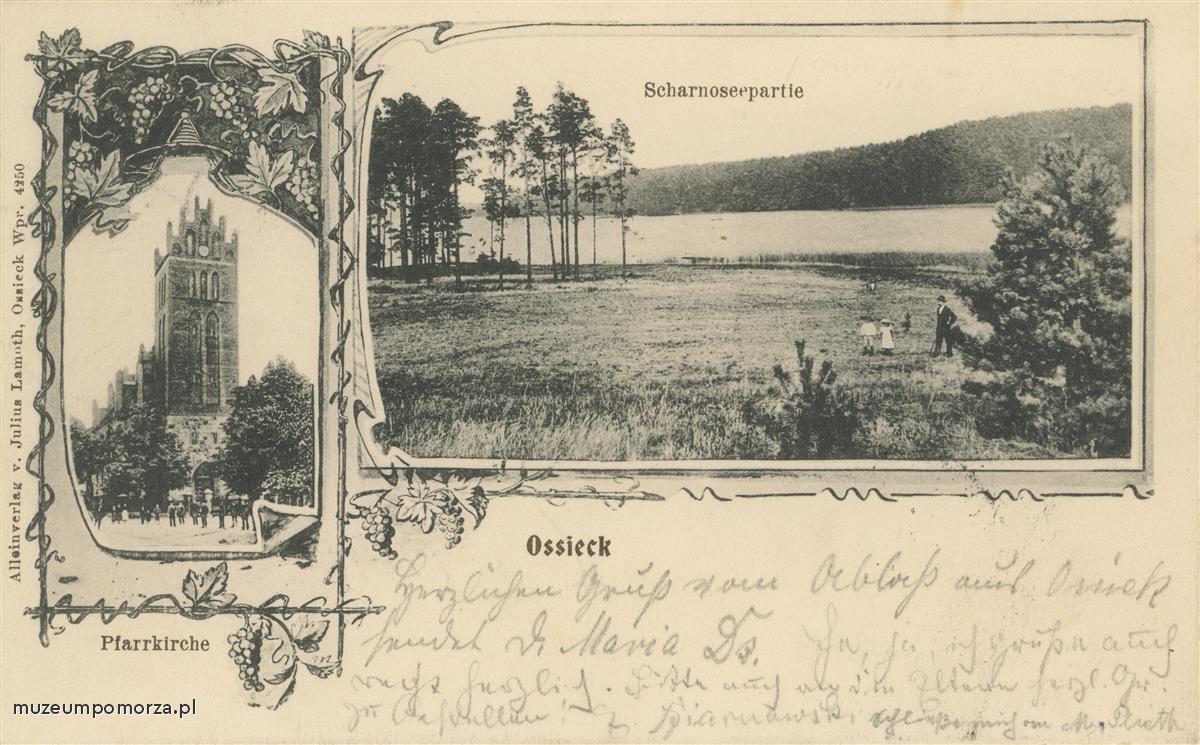 Scharnoseepartie
Alleinverlag v. Julius Lamoth, Ossieck Wpr. 4250
Ossieck
Pfarrkirche
Herzlichen Gruß vom Ablaß aus Ossiek
sendet D. Maria Ds. Ja, ja, ich grüße auch
recht herzlich. Bitte auch an die Eltern herzl. Gr.
zu bestellen!
muzeumpomorza.pl